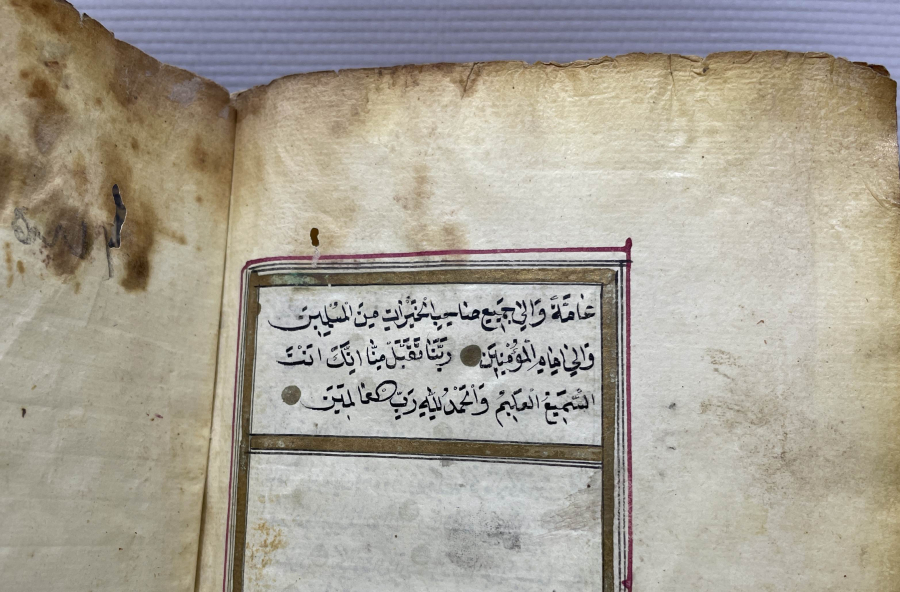 عَامَّةً وَاِلٰي جَمِيعِ صَاحِبِ الْخَيْرَاتِ مِنَ الْمُسْلِمِينَ
وَاِلٰي اِمَامِ الْمُؤْمِنِينَ رَبَّنَا تَقَبَّلْ مِنَّا اِنَّكَ اَنْتَ
السَّمِيعُ الْعَلِيمُ وَالْحَمْدُ لِلّٰهِ رَبِّ الْعَالَمِينَ